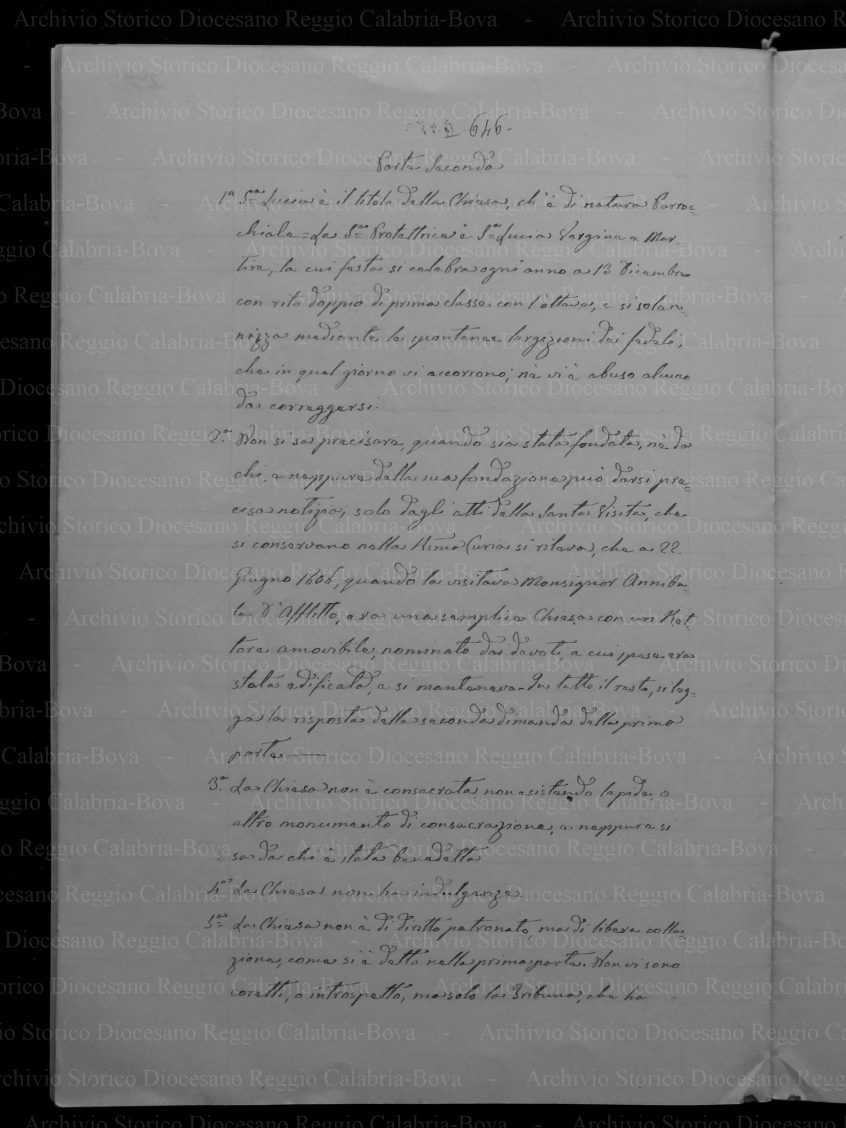 646-
Parte Seconda
1ª S.ta Lucia è il titolo della Chiesa, ch'è di natura Parroc=
chiale = La S.ta Protettrice è S.ta Lucia Vergine e Mar=
tire, la cui festa si celebra ogni anno a 13 Dicembre
con rito doppio di prima classe con l'ottava, e si solen=
nizza mediante le spontanee largizioni dei fedeli,
che in quel giorno vi accorrono; nè vi è abuso alcuno
da correggersi.
2ª Non si sa precisare, quando sia stata fondata, nè da
chi, e neppure della sua fondazione può darsi pre=
cisa notizia; solo dagli atti della Santa Visita, che
si conservano nella Rma Curia si rileva, che a 22.
Giugno 1606, quando la visitava Monsignor Anniba=
le D'Afflitto, era una semplice Chiesa con un Ret=
tore amovibile, nominato dai devoti, a cui spese era
stata edificata, e si manteneva. In tutto il resto, si leg=
ga la risposta della seconda dimanda della prima
parte ——
3ª La Chiesa non è consacrata non esistendo lapide, o
altro monumento di consacrazione, e neppure si
sa da chi è stata benedetta
4ª La Chiesa non ha indulgenze.
5ª La Chiesa non è di diritto patronato, ma di libera colla=
zione, come si è detto nella prima parte. Non vi sono
coretti, o introspetto, ma solo la Tribuna, che ha